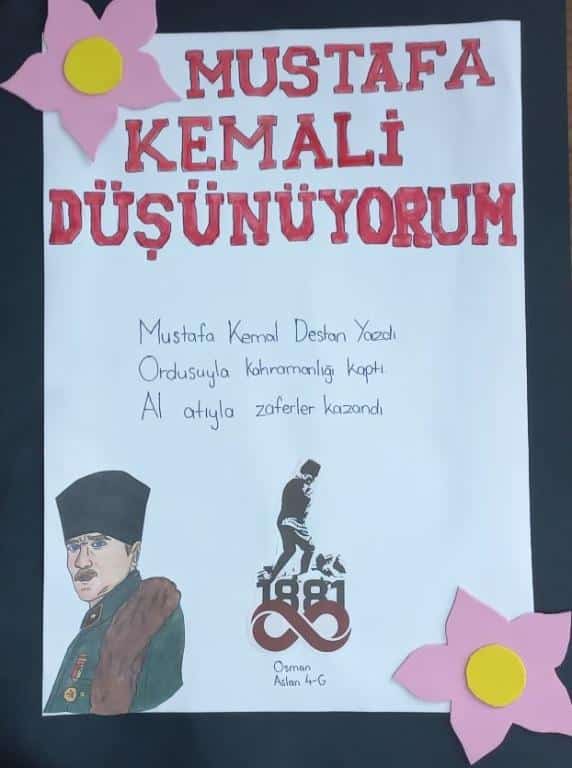 MUSTAFA
KEMALİ
DÜŞÜNÜYORUM
Mustafa Kemal Destan Yazdı
Ordusuyla kahramanlığı kaptı.
Al atıyla zaferler kazandı
1881
Osman
Aslan 4-G